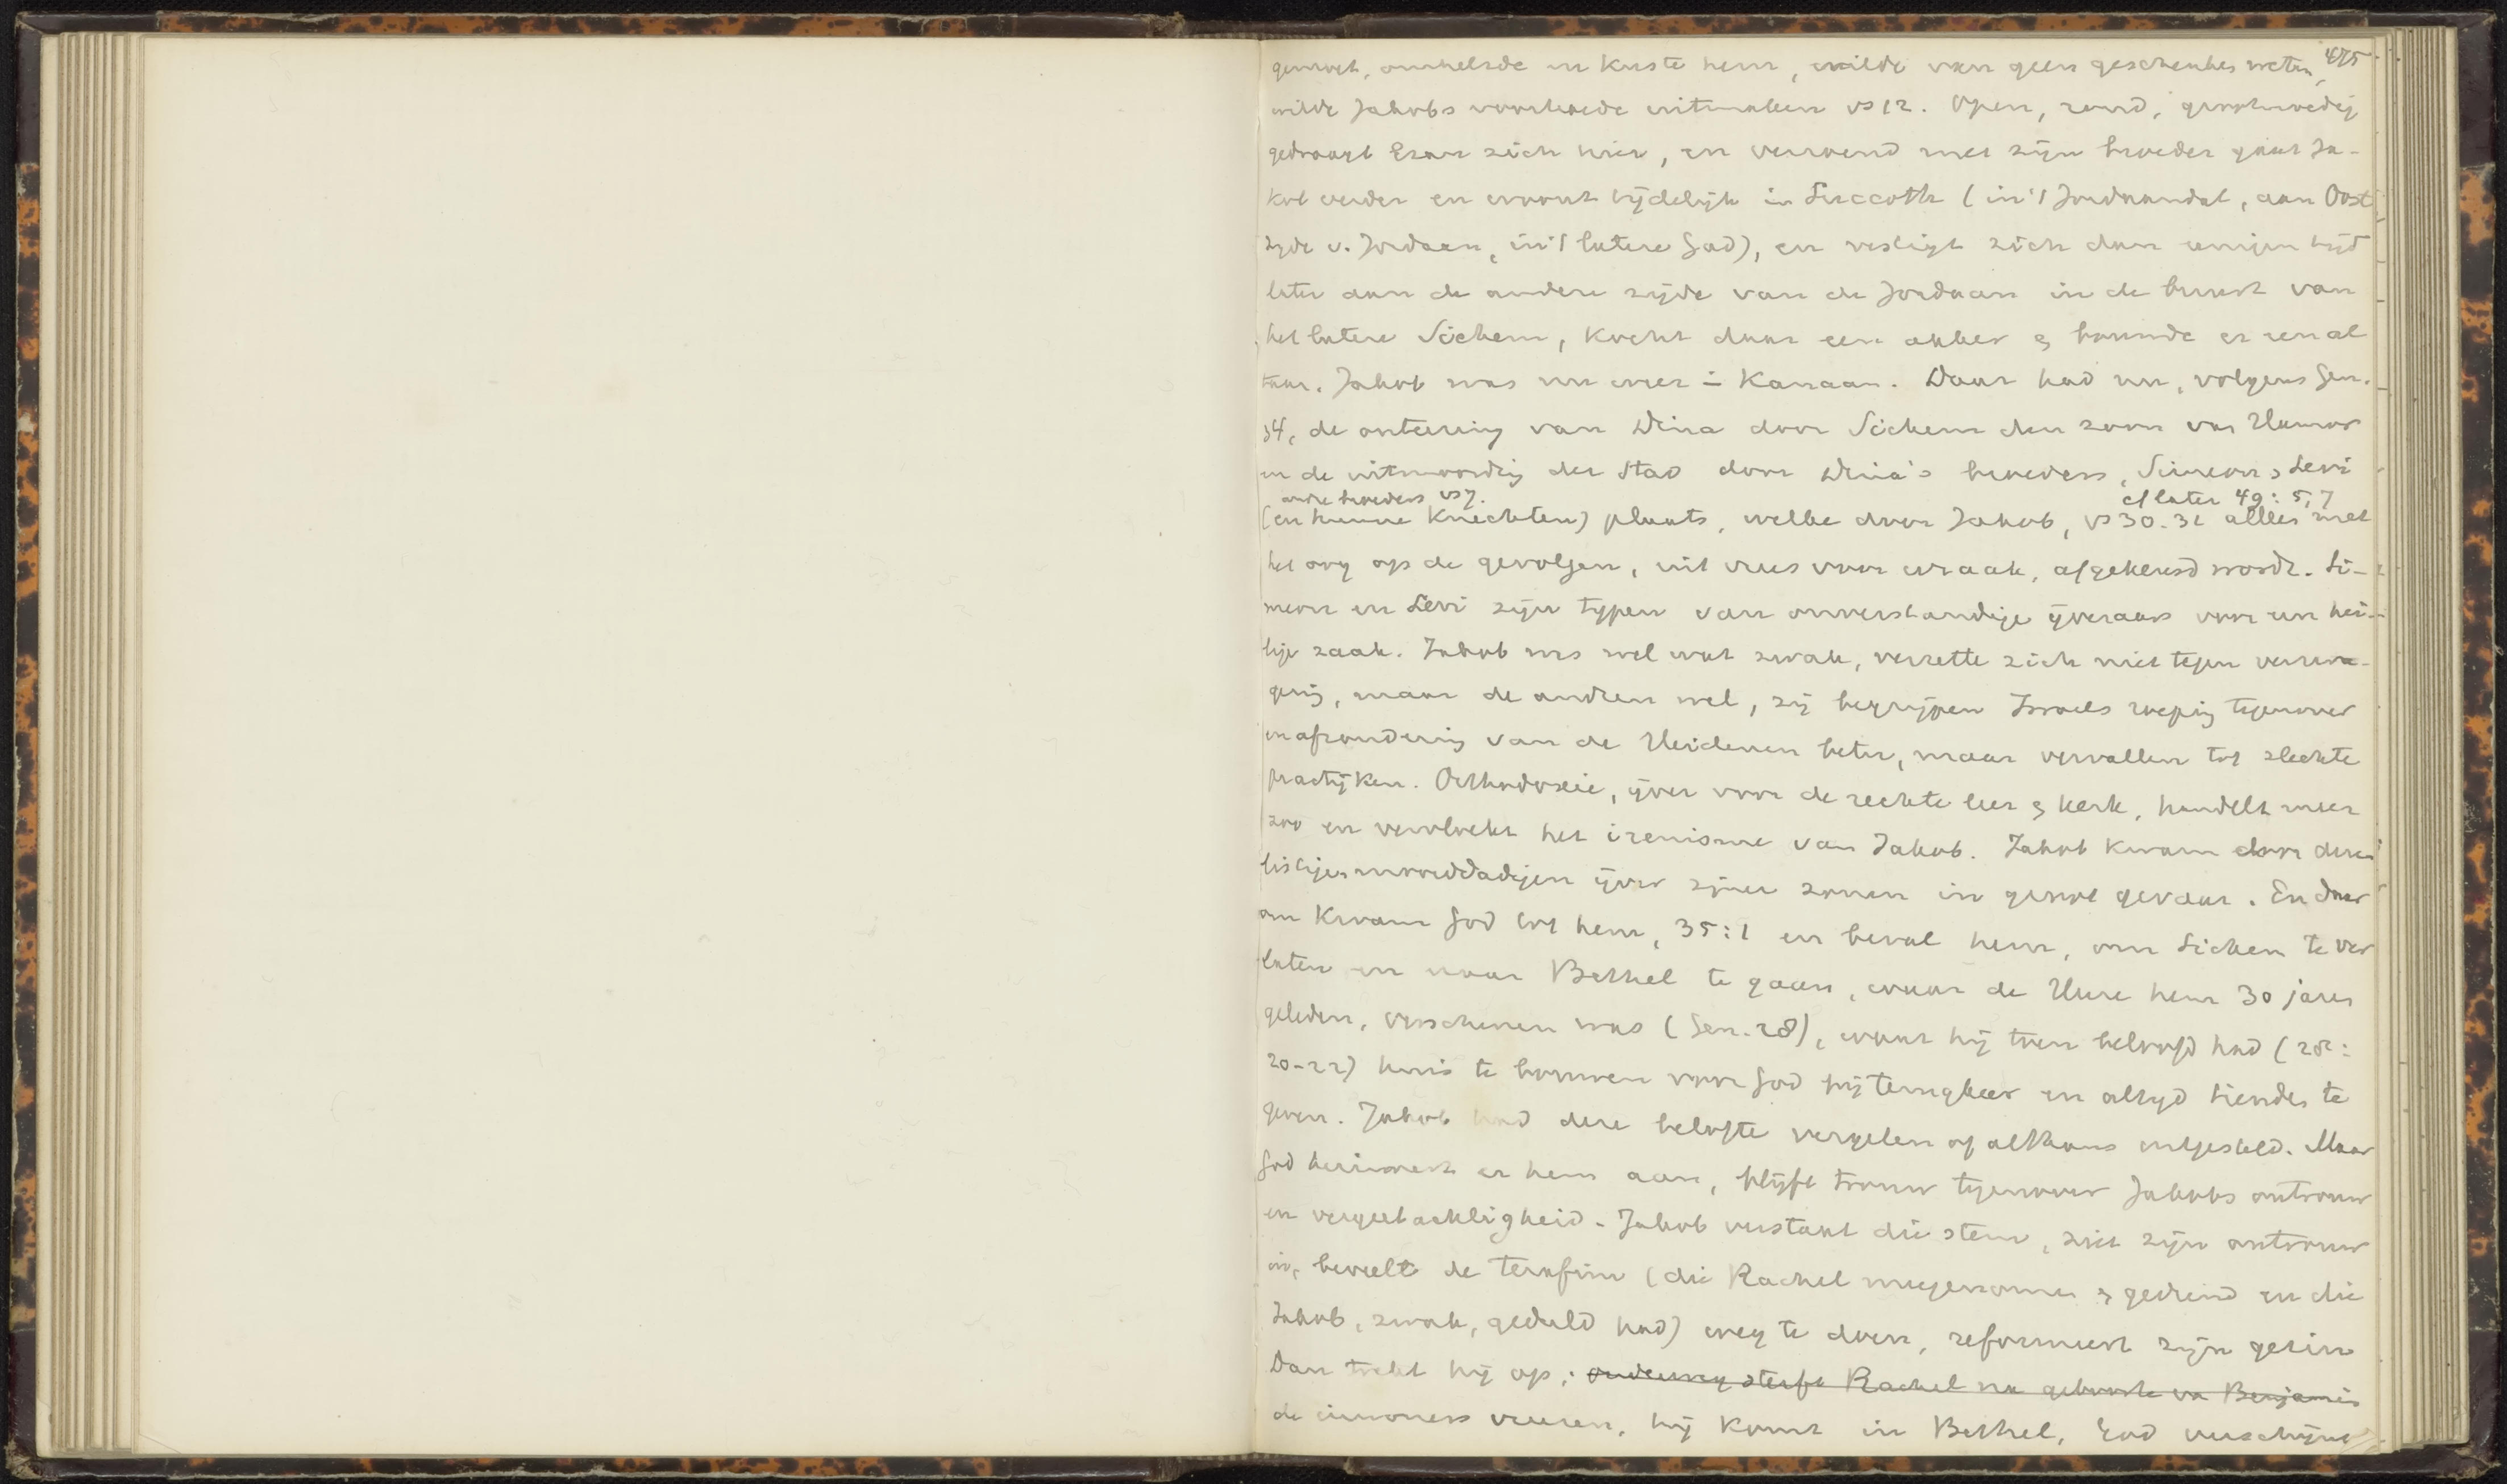 475
gemoet, omhelsde en kuste hem, wilde van geen geschenken weten,
wilde Jakobs voorhoede uitmaken vs 12. Open, rond, grootmoedig
gedraagt Esau zich hier, en verzoend met zijn broeder gaat Ja-
kob verder en woont tijdelijk in Succoth (in 't Jordaandal, aan Oost
zyde v. Jordaan, in 't latere Gad), en vestigt zich dan eenigen tijd
later aan de andere zijde van de Jordaan in de buurt van
het latere Sichem, kocht daar een akker & bouwde er een al
taar. Jakob was nu weer in Kanaan. Daar had nu, volgens Gen.
34, de onteering van Dina door Sichem den zoon van Hemor
en de uitmoording der stad door Dina's broeders, Simeon & Levi
andre broeders vs 7. cf later 49:5,7
(en hunne knechten) plaats, welke door Jakob, vs 30.31 alleen met
het oog op de gevolgen, uit vrees voor wraak, afgekeurd wordt. Si-
meon en Levi zijn typen van onverstandige ijveraars voor een hei-
lige zaak. Jakob was wel wat zwak, verzette zich niet tegen vermen-
ging, maar de andren wel, zij begrijpen Israels roeping tegenover
en afzondering van de Heidenen beter, maar vervallen tot slechte
practijken. Orthodoxie, ijver voor de rechte leer & kerk, handelt meer
zoo en vervloekt het irenisme van Jakob. Jakob kwam door dezen
listigen moorddadigen ijver zijner zonen in groot gevaar. En daar
om kwam God tot hem, 35:1 en beval hem, om Sichem te ver
laten en naar Bethel te gaan, waar de Heere hem 30 jaren
geleden, verschenen was (Gen. 28), waar hij toen beloofd had (28:
20-22) huis te bouwen voor God bij terugkeer en altyd tienden te
geven. Jakob had deze belofte vergeten of althans uitgesteld. Maar
God herinnert er hem aan, blijft trouw tegenover Jakobs ontrouw
en vergeetachtigheid. Jakob verstaat die stem, ziet zijn ontrouw
in, beveelt de terafim (die Rachel meegenomen & gediend en die
Jakob, zwak, geduld had) weg te doen, reformeert zijn gezin
Dan trekt hij op; onderweg sterft Rachel na geboorte van Benjamin
de inwoners vreezen, hij komt in Bethel, God verschijnt